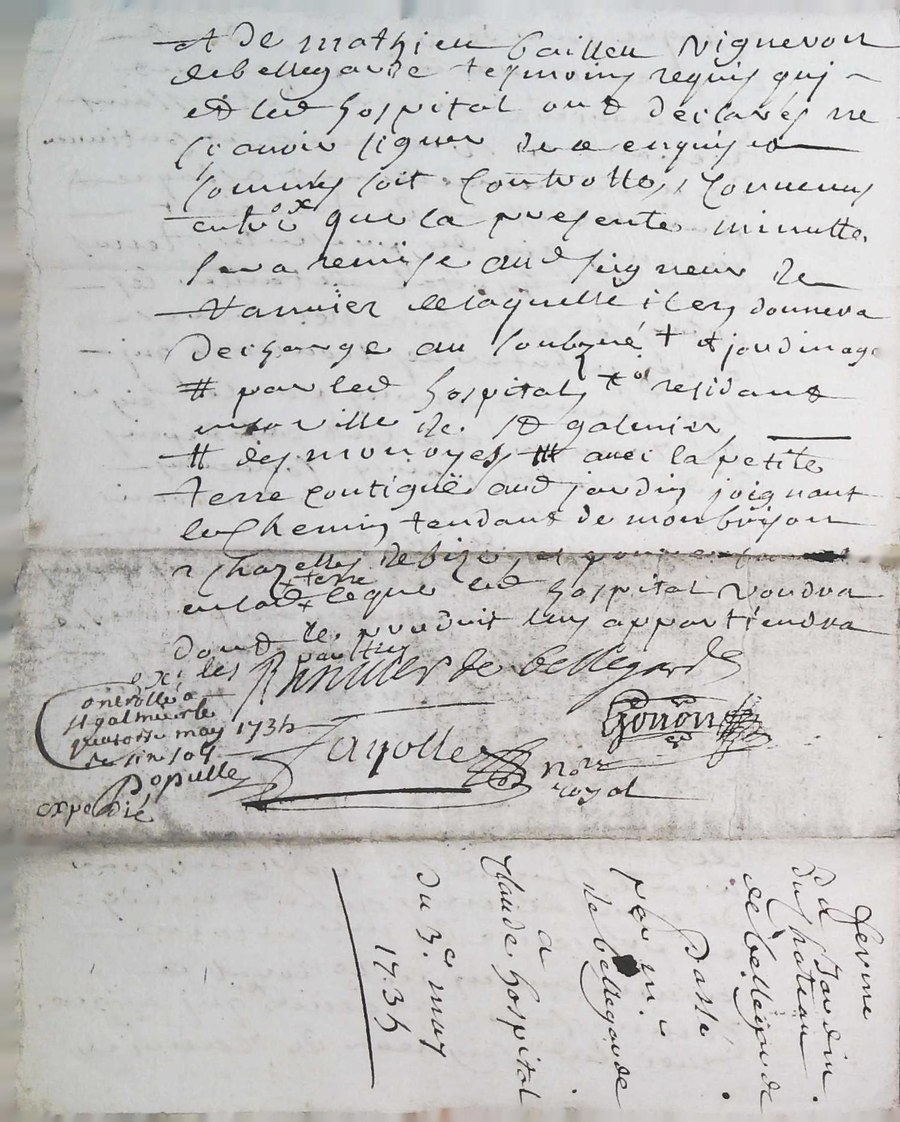 et de mathieu bailleu vigneron
de bellegarde tesmoins requis qui
et led hospital ont declarés ne
scavoir signer de ce enquis et
sommés soit controllé, convenus
entre ox que la presente minutte
sera remise aud seigneur de
Rannier de laquelle il en donnera
decharge au soubzné + et jardinage
# par led hospital +o residant
en sa ville de St galmier
# des monoyes # avec la petite
terre contiguë aud jardin joignant
le chemin tendant de monbrison
a chazelles de bize, et pourra
en lad + terre + ce que led hospital voudra
dont le produit luy appartiendra
parties
Rannier de bellegarde
Gonon
Fayolle
no.re
royal
ontrollé a
st galmier le
quatorze may 1734
Populle
expedié
ferme
du Jardin
du chateau
de bellegarde
Passé
par m.
de bellegarde
a
Claude hospital
du 3e may
1734